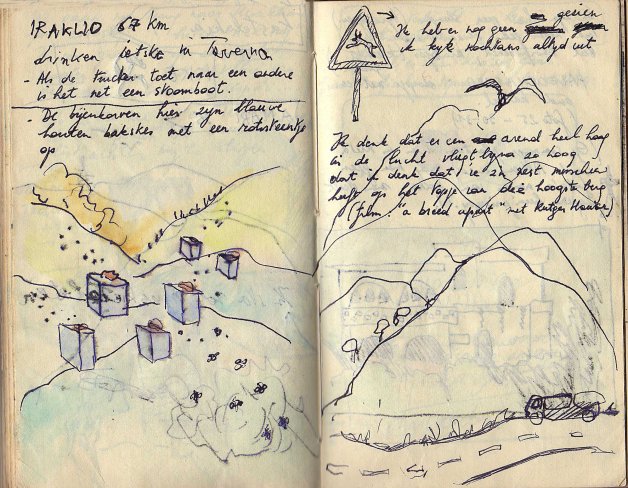 IRAKLIO 67 km
drinken ietske in Taverna
- Als de trucker toet naar een andere
is het net een stoomboot.
- De bijenkorven hier zijn blauwe
houten bakskes met een rotskeentje
op
→ Ik heb er nog geen gezien
ik kijk nochtans altijd uit
Ik denk dat er een arend heel hoog
in de lucht vliegt bijna zo hoog
dat ik denk dat ie zn nest misschien
heeft op het topje van die hoogste berg
(film: "a breed apart" met Rutger Hauer)